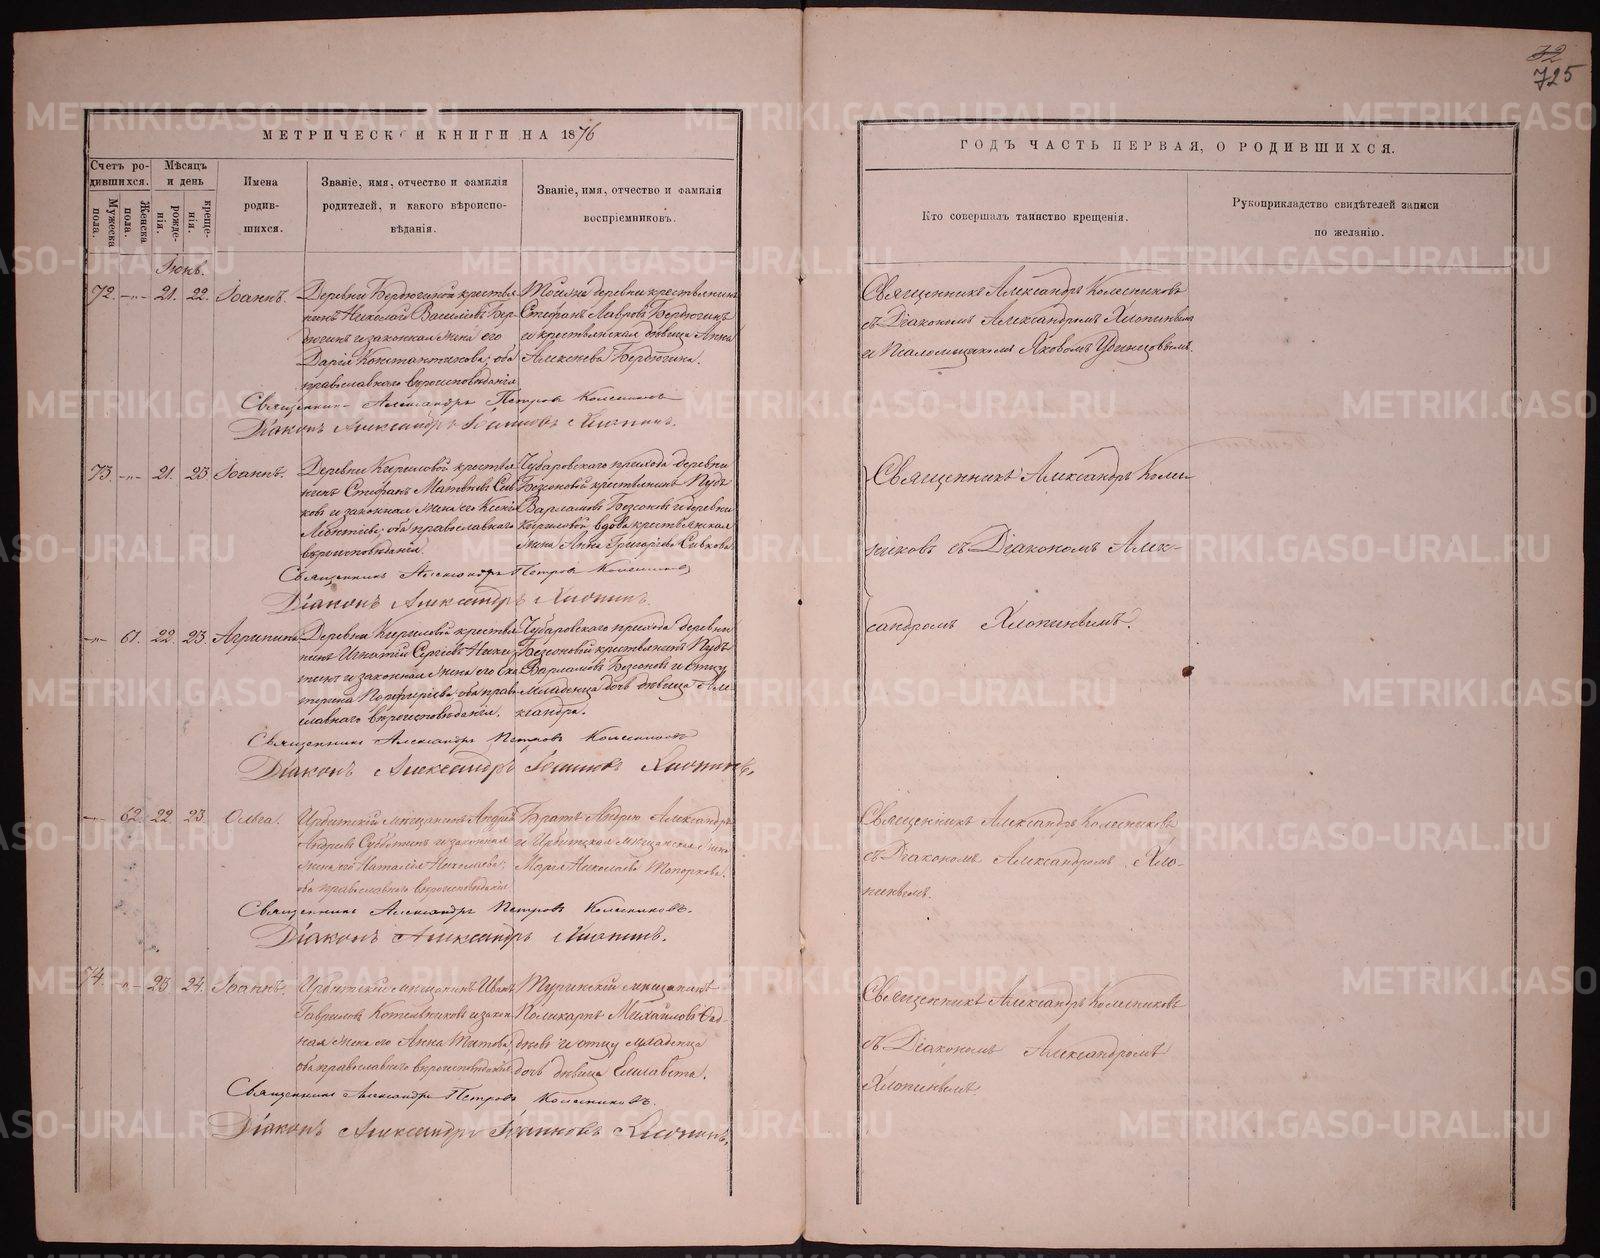 32
725
МЕТРИЧЕСКОЙ КНИГИ НА 1876
ГОДЪ ЧАСТЬ ПЕРВАЯ, О РОДИВШИХСЯ.
Счетъ ро-
дившихся.
Мужеска пола.
Женска пола.
Мѣсяцъ
и день
рожде-
нія.
креще-
нія.
Имена
родив-
шихся.
Званіе, имя, отчество и фамилія
родителей, и какого вѣроиспо-
вѣданія.
Званіе, имя, отчество и фамилія
воспріемниковъ.
Кто совершалъ таинство крещенія.
Рукоприкладство свидѣтелей записи
по желанію.
Іюнь.
72. -„- 21. 22. Іоаннъ.
Деревни Бердюгиной крестья
нинъ Николай Васильевъ Бер-
дюгинъ и законная жена его
Дарія Константинова, оба
православнаго вѣроисповѣданія
Тойже деревни крестьянинъ
Стефанъ Лавровъ Бердюгинъ
и крестьянская дѣвица Анна
Алексѣева Бердюгина.
Священникъ Александръ Колесниковъ
съ Діакономъ Александромъ Хлопинымъ
и Псаломщикомъ Яковомъ Удинцовымъ.
Священникъ Александръ Петровъ Колесниковъ
Діаконъ Александръ Іоанновъ Хлопинъ.
73. -„- 21. 23 Іоаннъ.
Деревни Кириловой крестья
нинъ Стефанъ Матвѣевъ Сив
ковъ и законная жена его Ксенія
Леонтіева, оба православнаго
вѣроисповѣданія.
Чубаровскаго прихода деревни
Безсоновой крестьянинъ Пудъ
Варламовъ Безсоновъ и деревни
Кириловой вдова крестьянская
жена Анна Григорьева Сивкова
Священникъ Александръ Колес-
никовъ съ Діакономъ Алек-
сандромъ Хлопинымъ.
Священникъ Александръ Петровъ Колесниковъ
Діаконъ Александръ Хлопинъ.
-„- 61. 22. 23. Агрипина
Деревни Кириловой крестья
нинъ Игнатій Сергѣевъ
и законная жена его Ека
терина Порфирьева, оба прав
славнаго вѣроисповѣданія.
Чубаровскаго прихода деревни
Безсоновой крестьянинъ Пудъ
Варламовъ Безсоновъ и отцу
младенца дочь дѣвица Але
ксандра.
Священникъ Александръ Петровъ Колесниковъ
Діаконъ Александръ Іоанновъ Хлопинъ.
62. 22. 23. Ольга.
Ирбитскій мѣщанинъ Андрей
Андреевъ Субботинъ и законная
жена его Наталія Николаева,
оба православнаго вѣроисповѣданія
Братъ Андрею Александръ
и Ирбитская мѣщанская жена
Марія Николаева Топоркова.
Священникъ Александръ Колесниковъ
съ Діакономъ Александромъ Хло-
пинымъ.
Священникъ Александръ Петровъ Колесниковъ.
Діаконъ Александръ Хлопинъ.
74. -„- 23 24. Іоаннъ.
Ирбитскій мѣщанинъ Иванъ
Гавриловъ Котельниковъ и закон
ная жена его Анна Титова
оба православнаго вѣроисповѣданія
Туринскій мѣщанинъ
Поликарпъ Михайловъ
и отцу младенца
дочь дѣвица Елисавета.
Священникъ Александръ Колесниковъ
съ Діакономъ Александромъ
Хлопинымъ.
Священникъ Александръ Петровъ Колесниковъ.
Діаконъ Александръ Іоанновъ Хлопинъ.
METRIKI.GASO-URAL.RU